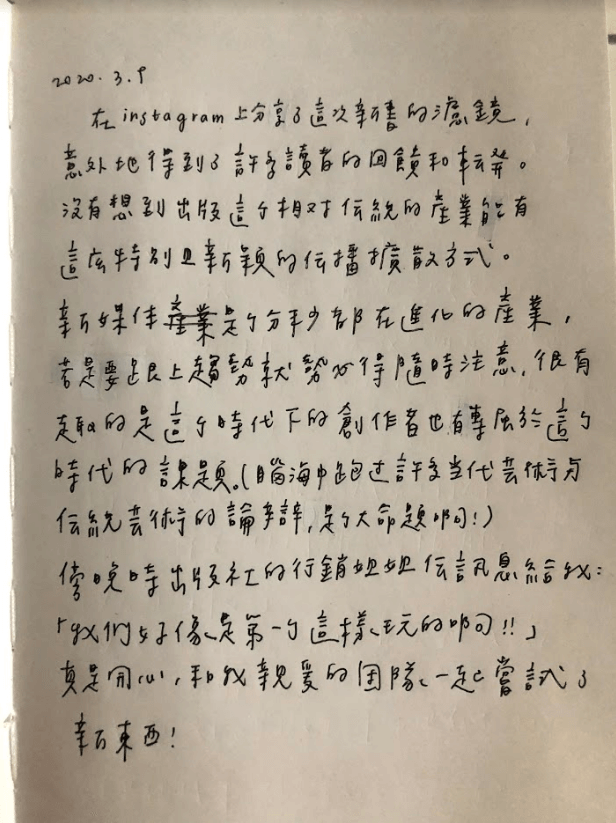 2020.3.9
在instagram上分享了這次新書的濾鏡，
意外地得到了許多讀者的回饋和転発。
沒有想到出版這个相対伝統的產業能有
這広特別且新穎的伝播擴散方式。
新媒体產業是个分秒都在進化的產業，
若是要跟上趨勢就勢必得隨時注意，很有
趣的是這个時代下的創作者也有專屬於這个
時代的課題。(腦海中跑过許多当代芸術与
伝統芸術的論辯，是个大命題啊!)
傍晚時出版社的行銷姐姐伝訊息給我：
「我們好像是第一个這樣玩的啊!!」
真是開心，和我親愛的団隊一起嘗試了
新東西!